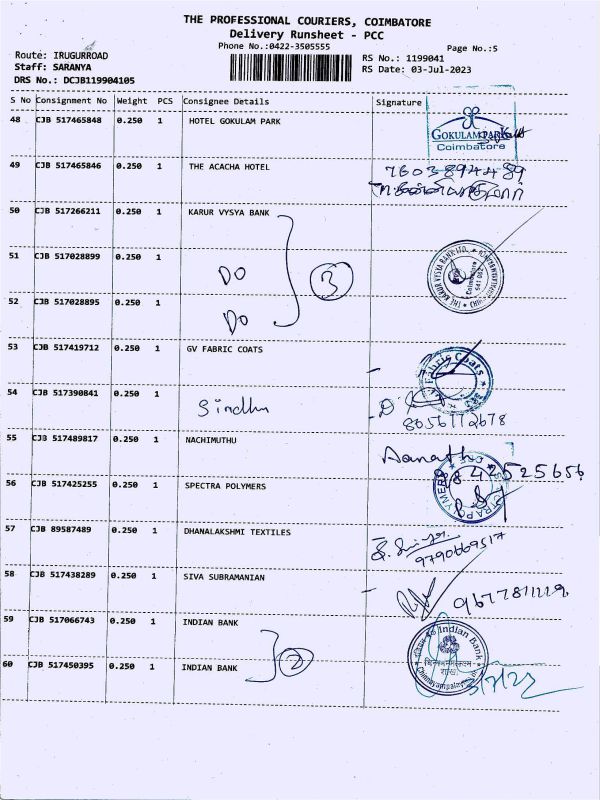 THE PROFESSIONAL COURIERS, COIMBATORE
Delivery Runsheet - PCC
Phone No.:0422-3505555
Page No.:5
Route: IRUGURROAD
Staff: SARANYA
DRS No.: DCJB119904105
RS No.: 1199041
RS Date: 03-Jul-2023
S No Consignment No Weight PCS Consignee Details Signature
48 CJB 517465848 0.250 1 HOTEL GOKULAM PARK
GOKULAM PARK
Coimbatore
49 CJB 517465846 0.250 1 THE ACACHA HOTEL
7603894489
50 CJB 517266211 0.250 1 KARUR VYSYA BANK
51 CJB 517028899 0.250 1 DO 3
52 CJB 517028895 0.250 1 DO
THE KARUR VYSYA BANK LTD.
Coimbatore
53 CJB 517419712 0.250 1 GV FABRIC COATS
Fabric Coats
54 CJB 517390841 0.250 1 Sindhu
8056772678
55 CJB 517489817 0.250 1 NACHIMUTHU
842525656
56 CJB 517425255 0.250 1 SPECTRA POLYMERS
57 CJB 89587489 0.250 1 DHANALAKSHMI TEXTILES
9790669517
58 CJB 517438289 0.250 1 SIVA SUBRAMANIAN
59 CJB 517066743 0.250 1 INDIAN BANK
2
Indian Bank
60 CJB 517450395 0.250 1 INDIAN BANK
3/7/23